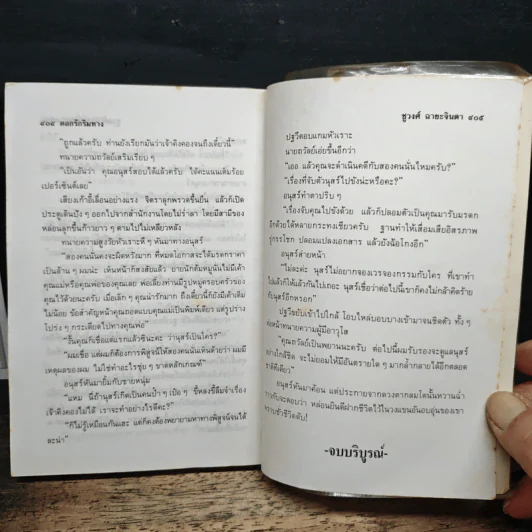 ๔๐๔ ตลกรักริมทาง
"ถูกแล้วครับ ท่านยังเรียกมันว่าเจ้าดิงคองจนถึงเดี๋ยวนี้"
ทนายความถวัลย์เสริมเรียบ ๆ
"เป็นอันว่า คุณอนุสร์สอบได้แล้วครับ ให้คะแนนเต็มร้อย
เปอร์เซ็นต์เลย"
เสียงเก้าอี้เลื่อนอย่างแรง จิตราลุกพรวดขึ้นยืน แล้วก็เปิด
ประตูเดินปัง ๆ ออกไปจากสำนักงานโดยไม่ร่ำลา โดยมีสามีของ
หล่อนลุกขึ้นก้าวยาว ๆ ตามไปไม่เหลียวหลัง
ทนายความสูงวัยหัวเราะหึ ๆ หันมาทางอนุสร์
"สองคนนั่นคงจะผิดหวังมาก ที่หมดโอกาสจะได้มรดกราคา
เป็นล้าน ๆ ผมน่ะ เห็นหน้าก็สงสัยแล้ว
คุณแม่หรือคุณพ่อของคุณเลย พอเดี๋ยงท่านมีรูปหมู่ครอบครัวของ
คุณไว้ด้วยนะครับ เมื่อเล็ก ๆ คุณน่ารักมาก ถึงเดี๋ยวนี้ก็ยังมีเค้าเดิม
ไม่น้อย ข้อสำคัญหน้าคุณถอดแบบคุณแม่เป็นพิมพ์เดียว แต่รูปร่าง
โปร่ง ๆ กระเดียดไปทางคุณพ่อ"
"งั้นคุณก็เชื่อแต่แรกแล้วซีนะคะ ว่านุสร์เป็นใคร?"
"ผมเชื่อ แต่ผมก็ต้องการพิสูจน์ให้สองคนนั่นเห็นด้วยว่า ผมมี
เหตุผลของผม ไม่ใช่ทำอะไรซุ่ม ๆ ขาดหลักเกณฑ์"
อนุสร์หันมายิ้มกับชายหนุ่ม
"แหม นี่ถ้านุสร์เกิดเป็นคนป้ำ ๆ เป๋อ ๆ ขี้หลงขี้ลืมจำเรื่อง
เจ้าดิงคองไม่ได้ เราจะทำอย่างไรดีคะ?"
"ก็ไม่รู้เหมือนกันแฮะ แต่ก็คงต้องพยายามหาทางพิสูจน์จนได้
ละน่า"
ชูวงศ์ ฉายะจินดา ๔๐๕
ปฐวีตอบแกมหัวเราะ
นายถวัลย์เอ่ยขึ้นอีกว่า
"เออ แล้วคุณจะดำเนินคดีกับสองคนนั่นไหมครับ?"
"เรื่องที่จับตัวนุสร์ไปขังน่ะหรือคะ?"
อนุสร์ทำตาปริบ ๆ
"เรื่องจับคุณไปขังด้วย แล้วก็ปลอมตัวเป็นคุณมารับมรดก
อีกด้วยได้หลายกระทงเชียวครับ ฐานทำให้เสื่อมเสียอิสรภาพ
กรรโชก ปลอมแปลงเอกสาร แล้วยังฉ้อโกงอีก"
อนุสร์ส่ายหน้า
"ไม่ละค่ะ นุสร์ไม่อยากจองเวรจองกรรมกับใคร ที่เขาทำ
ไปแล้วก็ให้แล้วกันไปเถอะ นุสร์เชื่อว่าต่อไปนี้เขาก็คงไม่กล้าคิดร้าย
กับนุสร์อีกหรอก"
ปฐวีขยับเข้าไปใกล้ โอบไหล่บอบบางเข้ามาจนชิดตัว ทั้ง ๆ
ต่อหน้าทนายความผู้มีอาวุโส
"คุณถวัลย์เป็นพยานนะครับ ต่อไปนี้ผมรับรองจะดูแลนุสร์
อย่างใกล้ชิด จะไม่ยอมให้มีอันตรายใด ๆ มากล้ำกลายได้อีกตลอด
ชาติทีเดียว"
อนุสร์หันมาค้อน แต่ประกายจากดวงตากลมโตนั้นหวานฉ่ำ
หล่อนยินดีฝากชีวิตไว้ในวงแขนอันอบอุ่นของเขา
ชั่วชีวิตดับ!
-จบบริบูรณ์-